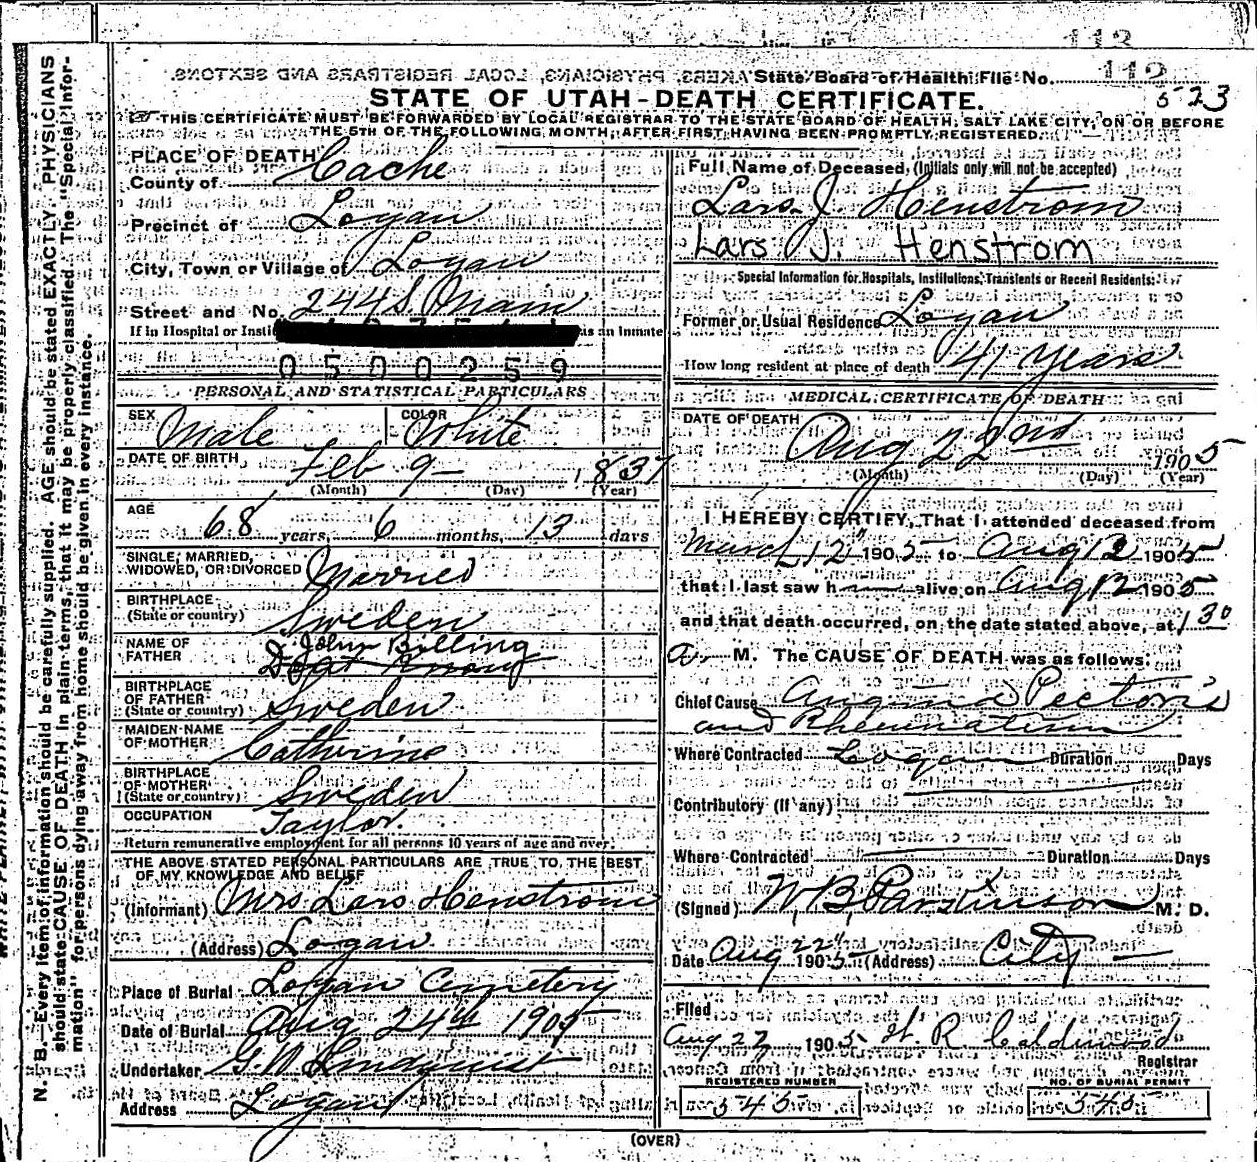 113
State Board of Health File No. 112
523
STATE OF UTAH-DEATH CERTIFICATE.
THIS CERTIFICATE MUST BE FORWARDED BY LOCAL REGISTRAR TO THE STATE BOARD OF HEALTH, SALT LAKE CITY, ON OR BEFORE
THE 5TH OF THE FOLLOWING MONTH, AFTER FIRST HAVING BEEN PROMPTLY REGISTERED.
N. B.—Every item of information should be carefully supplied. AGE should be stated EXACTLY. PHYSICIANS
should state CAUSE OF DEATH in plain terms, that it may be properly classified. The "Special Infor-
mation" for persons dying away from home should be given in every instance.
PLACE OF DEATH
County of Cache
Precinct of Logan
City, Town or Village of Logan
Street and No. 244 S.
If in Hospital or as an inmate
0500259
PERSONAL AND STATISTICAL PARTICULARS
SEX Male COLOR White
DATE OF BIRTH Feb 9— 1837
(Month) (Day) (Year)
AGE 68 years, 6 months, 13 days
SINGLE, MARRIED,
WIDOWED, OR DIVORCED Married
BIRTHPLACE
(State or country) Sweden
NAME OF
FATHER John Billing
BIRTHPLACE
OF FATHER
(State or country) Sweden
MAIDEN NAME
OF MOTHER Catherine
BIRTHPLACE
OF MOTHER
(State or country) Sweden
OCCUPATION Taylor.
Return remunerative employment for all persons 10 years of age and over.
THE ABOVE STATED PERSONAL PARTICULARS ARE TRUE TO THE BEST
OF MY KNOWLEDGE AND BELIEF
(Informant) Mrs Lars Henstrom
(Address) Logan
Place of Burial Logan Cemetery
Date of Burial Aug 24th 1905
Undertaker G. W. Lindquist
Address Logan
Full Name of Deceased, (Initials only will not be accepted)
Lars J. Henstrom
Lars J. Henstrom
Special Information for Hospitals, Institutions, Transients or Recent Residents:
Former or Usual Residence Logan
How long resident at place of death 41 Years
MEDICAL CERTIFICATE OF DEATH
DATE OF DEATH Aug 22nd 1905
(Month) (Day) (Year)
I HEREBY CERTIFY, That I attended deceased from
March 12 1905 to Aug 12 1905
that I last saw h alive on Aug 12 1905
and that death occurred, on the date stated above, at 1 30
a. M. The CAUSE OF DEATH was as follows:
Chief Cause Angina Pectoris
and Rheumatism
Where Contracted Logan Duration Days
Contributory (If any)
Where Contracted Duration Days
(Signed) W. B. Parkinson M. D.
Date Aug 22 1905 (Address) City
Filed
Aug 22 1905 H. R. Caldwood
Registrar
REGISTERED NUMBER NO. OF BURIAL PERMIT
545 545
(OVER)